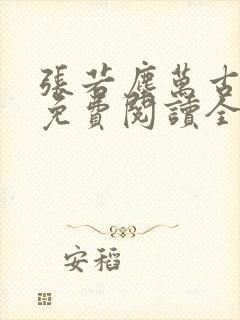 張若塵萬古
免費閱讀全
安稻